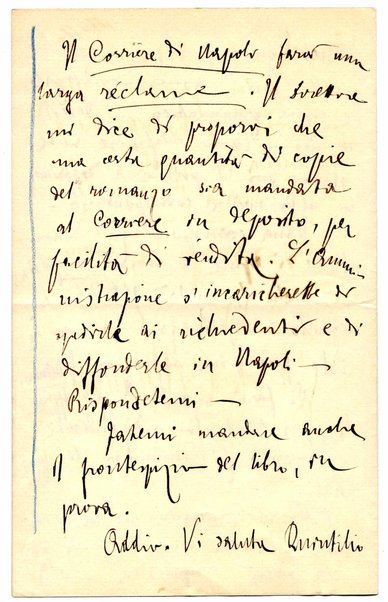 Il Corriere di Napoli farà una
larga réclame. Il direttore
mi dice di proporvi che
una certa quantità di copie
del romanzo sia mandata
al Corriere in deposito, per
facilità di vendita. L'Ammi-
nistrazione s'incaricherebbe di
spedirle ai richiedenti e di
diffonderle in Napoli —
Rispondetemi —
Fatemi mandare anche
il frontespizio del libro, in
prova.
Addio. Vi saluta Quintilio